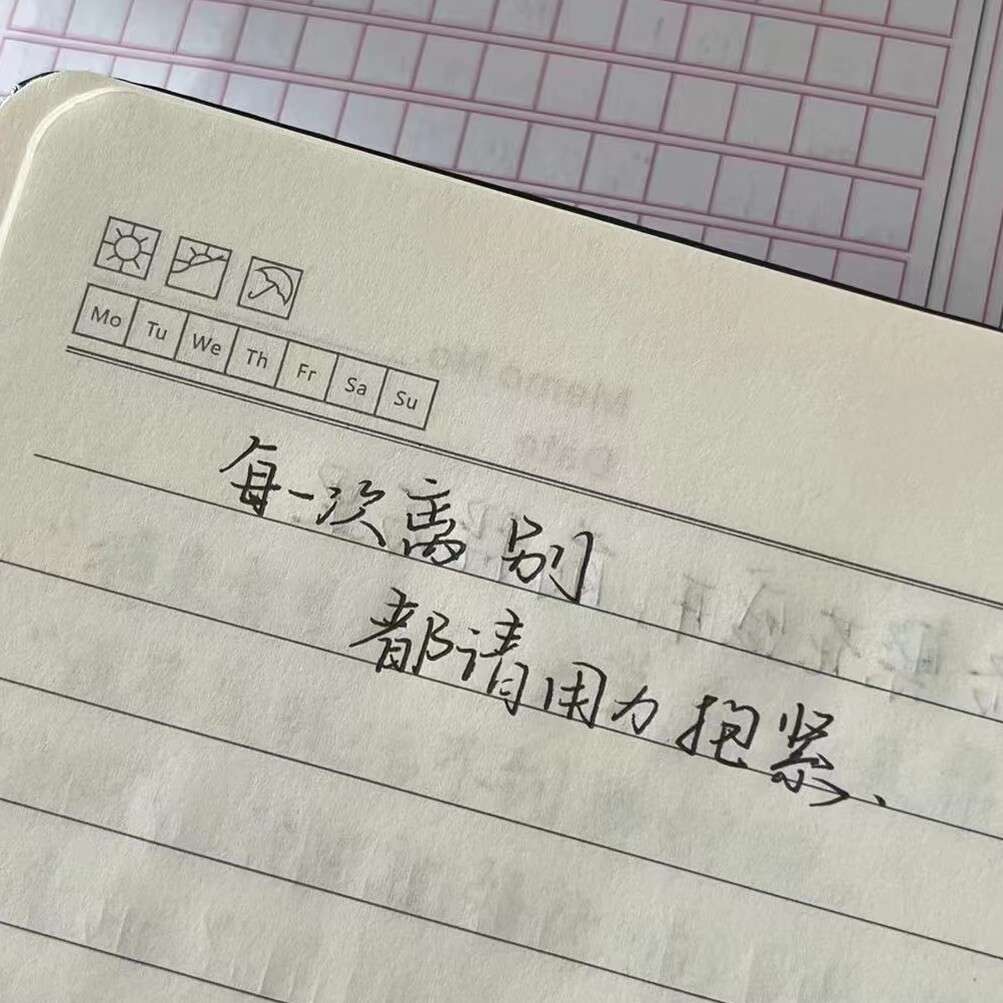 Mo Tu We Th Fr Sa Su
Memo No
Date
每一次离别
都请用力抱紧、